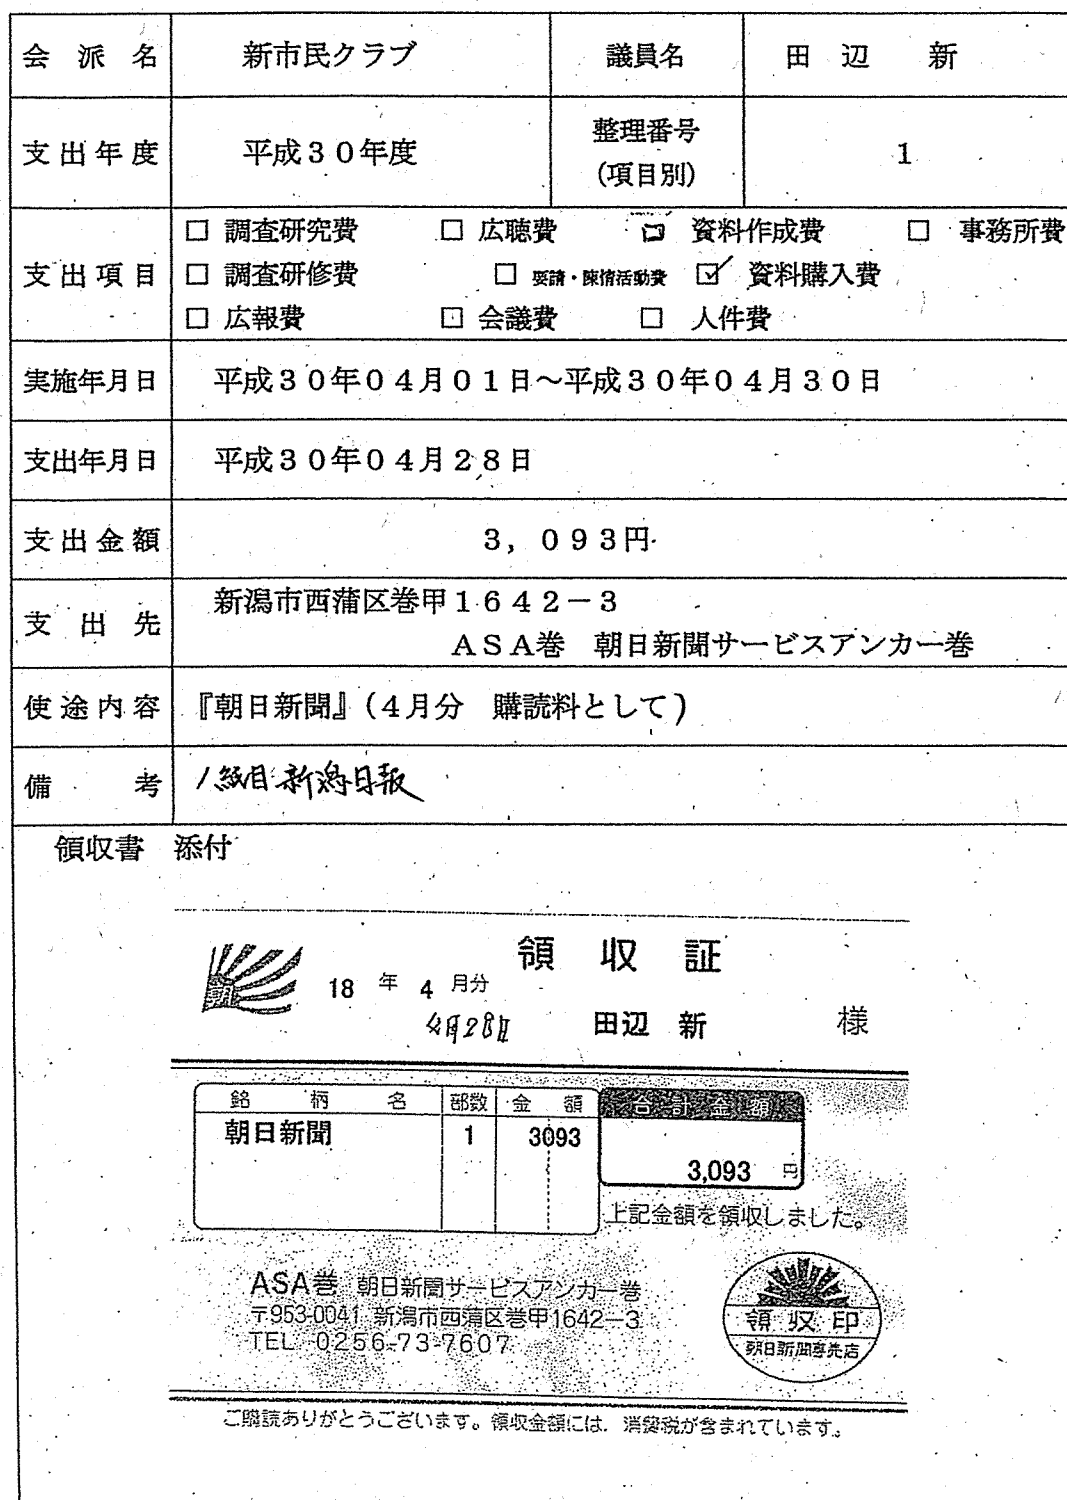 会派名 新市民クラブ 議員名 田辺 新
支出年度 平成30年度 整理番号(項目別) 1
支出項目 □ 調査研究費 □ 広聴費 □ 資料作成費 □ 事務所費
□ 調査研修費 □ 要請・陳情活動費 ☑ 資料購入費
□ 広報費 □ 会議費 □ 人件費
実施年月日 平成30年04月01日～平成30年04月30日
支出年月日 平成30年04月28日
支出金額 3,093円
支出先 新潟市西蒲区巻甲1642-3
ASA巻 朝日新聞サービスアンカー巻
使途内容 『朝日新聞』(4月分 購読料として)
備考 1紙目新潟日報
領収書 添付
領収証
朝
18年4月分
4月28日 田辺 新 様
銘柄名 部数 金額 合計金額
朝日新聞 1 3093
3,093円
上記金額を領収しました。
ASA巻 朝日新聞サービスアンカー巻
〒953-0041 新潟市西蒲区巻甲1642-3
TEL 0256-73-7607
領収印
朝日新聞専売店
ご購読ありがとうございます。領収金額には、消費税が含まれています。